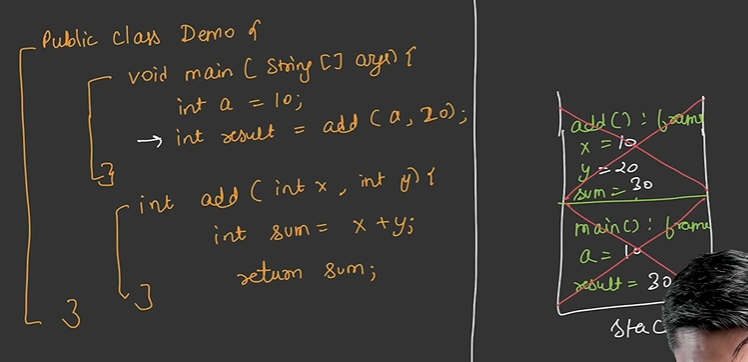 Public class Demo {
void main ( String [] args) {
int a = 10;
→ int result = add ( a, 20);
}
int add ( int x , int y) {
int sum = x + y;
return sum;
}
}
add() : frame
x = 10
y = 20
sum = 30
main() : frame
a = 10
result = 30
stac